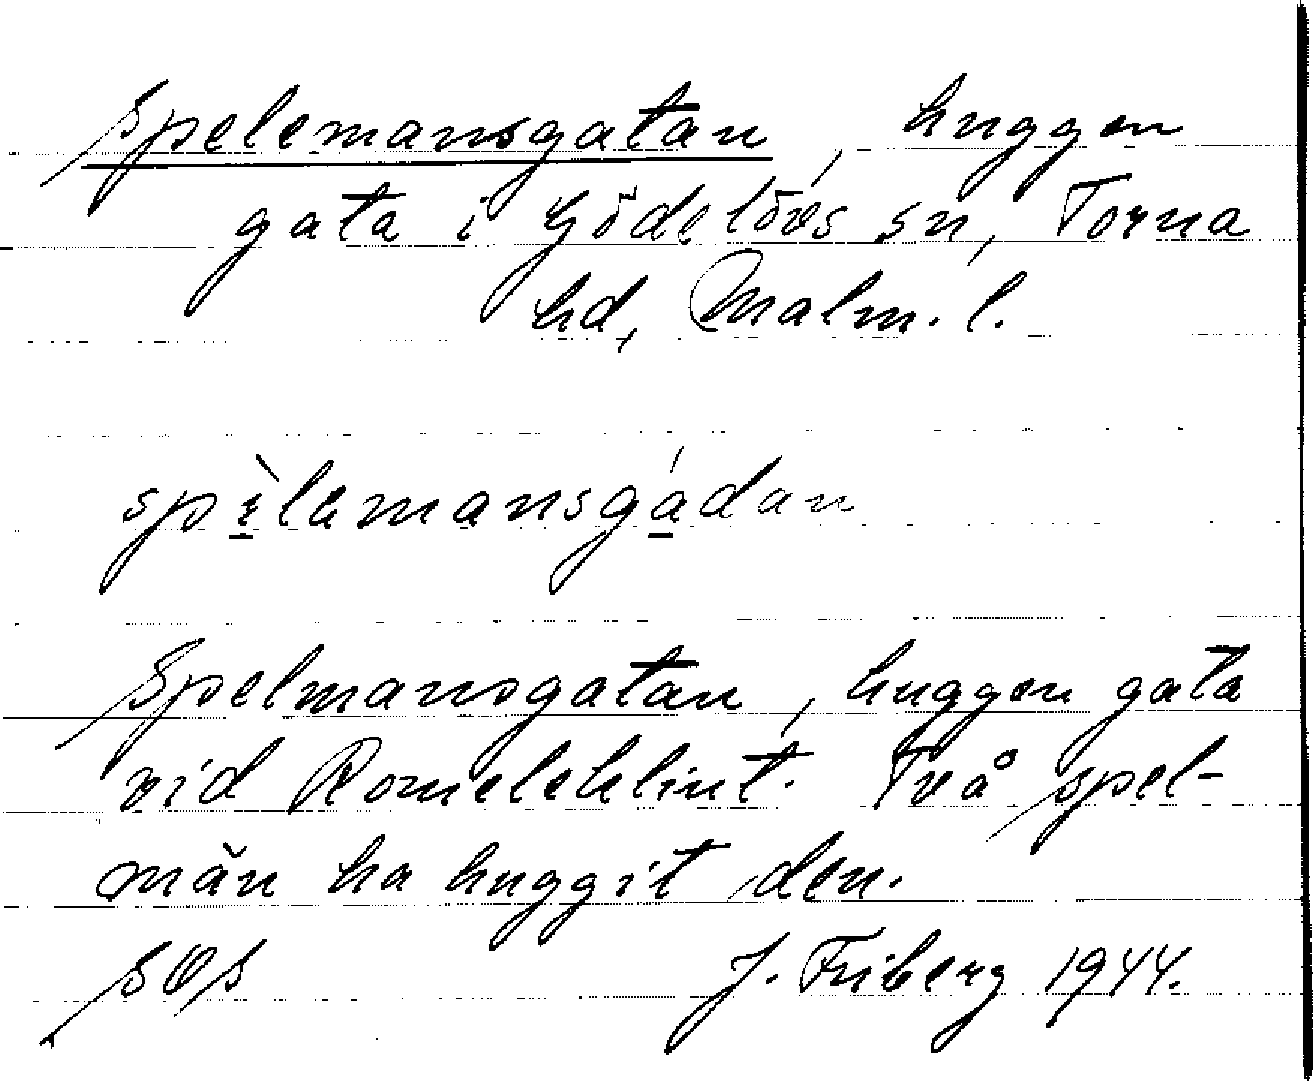 Spelemansgatan, huggen
gata i Gödelövs sn, Torna
hd, Malm. l.
spìlemansgádan
Spelmansgatan, huggen gata
vid Romeleklint. Två spel-
män ha huggit den.
J. Friberg 1944.